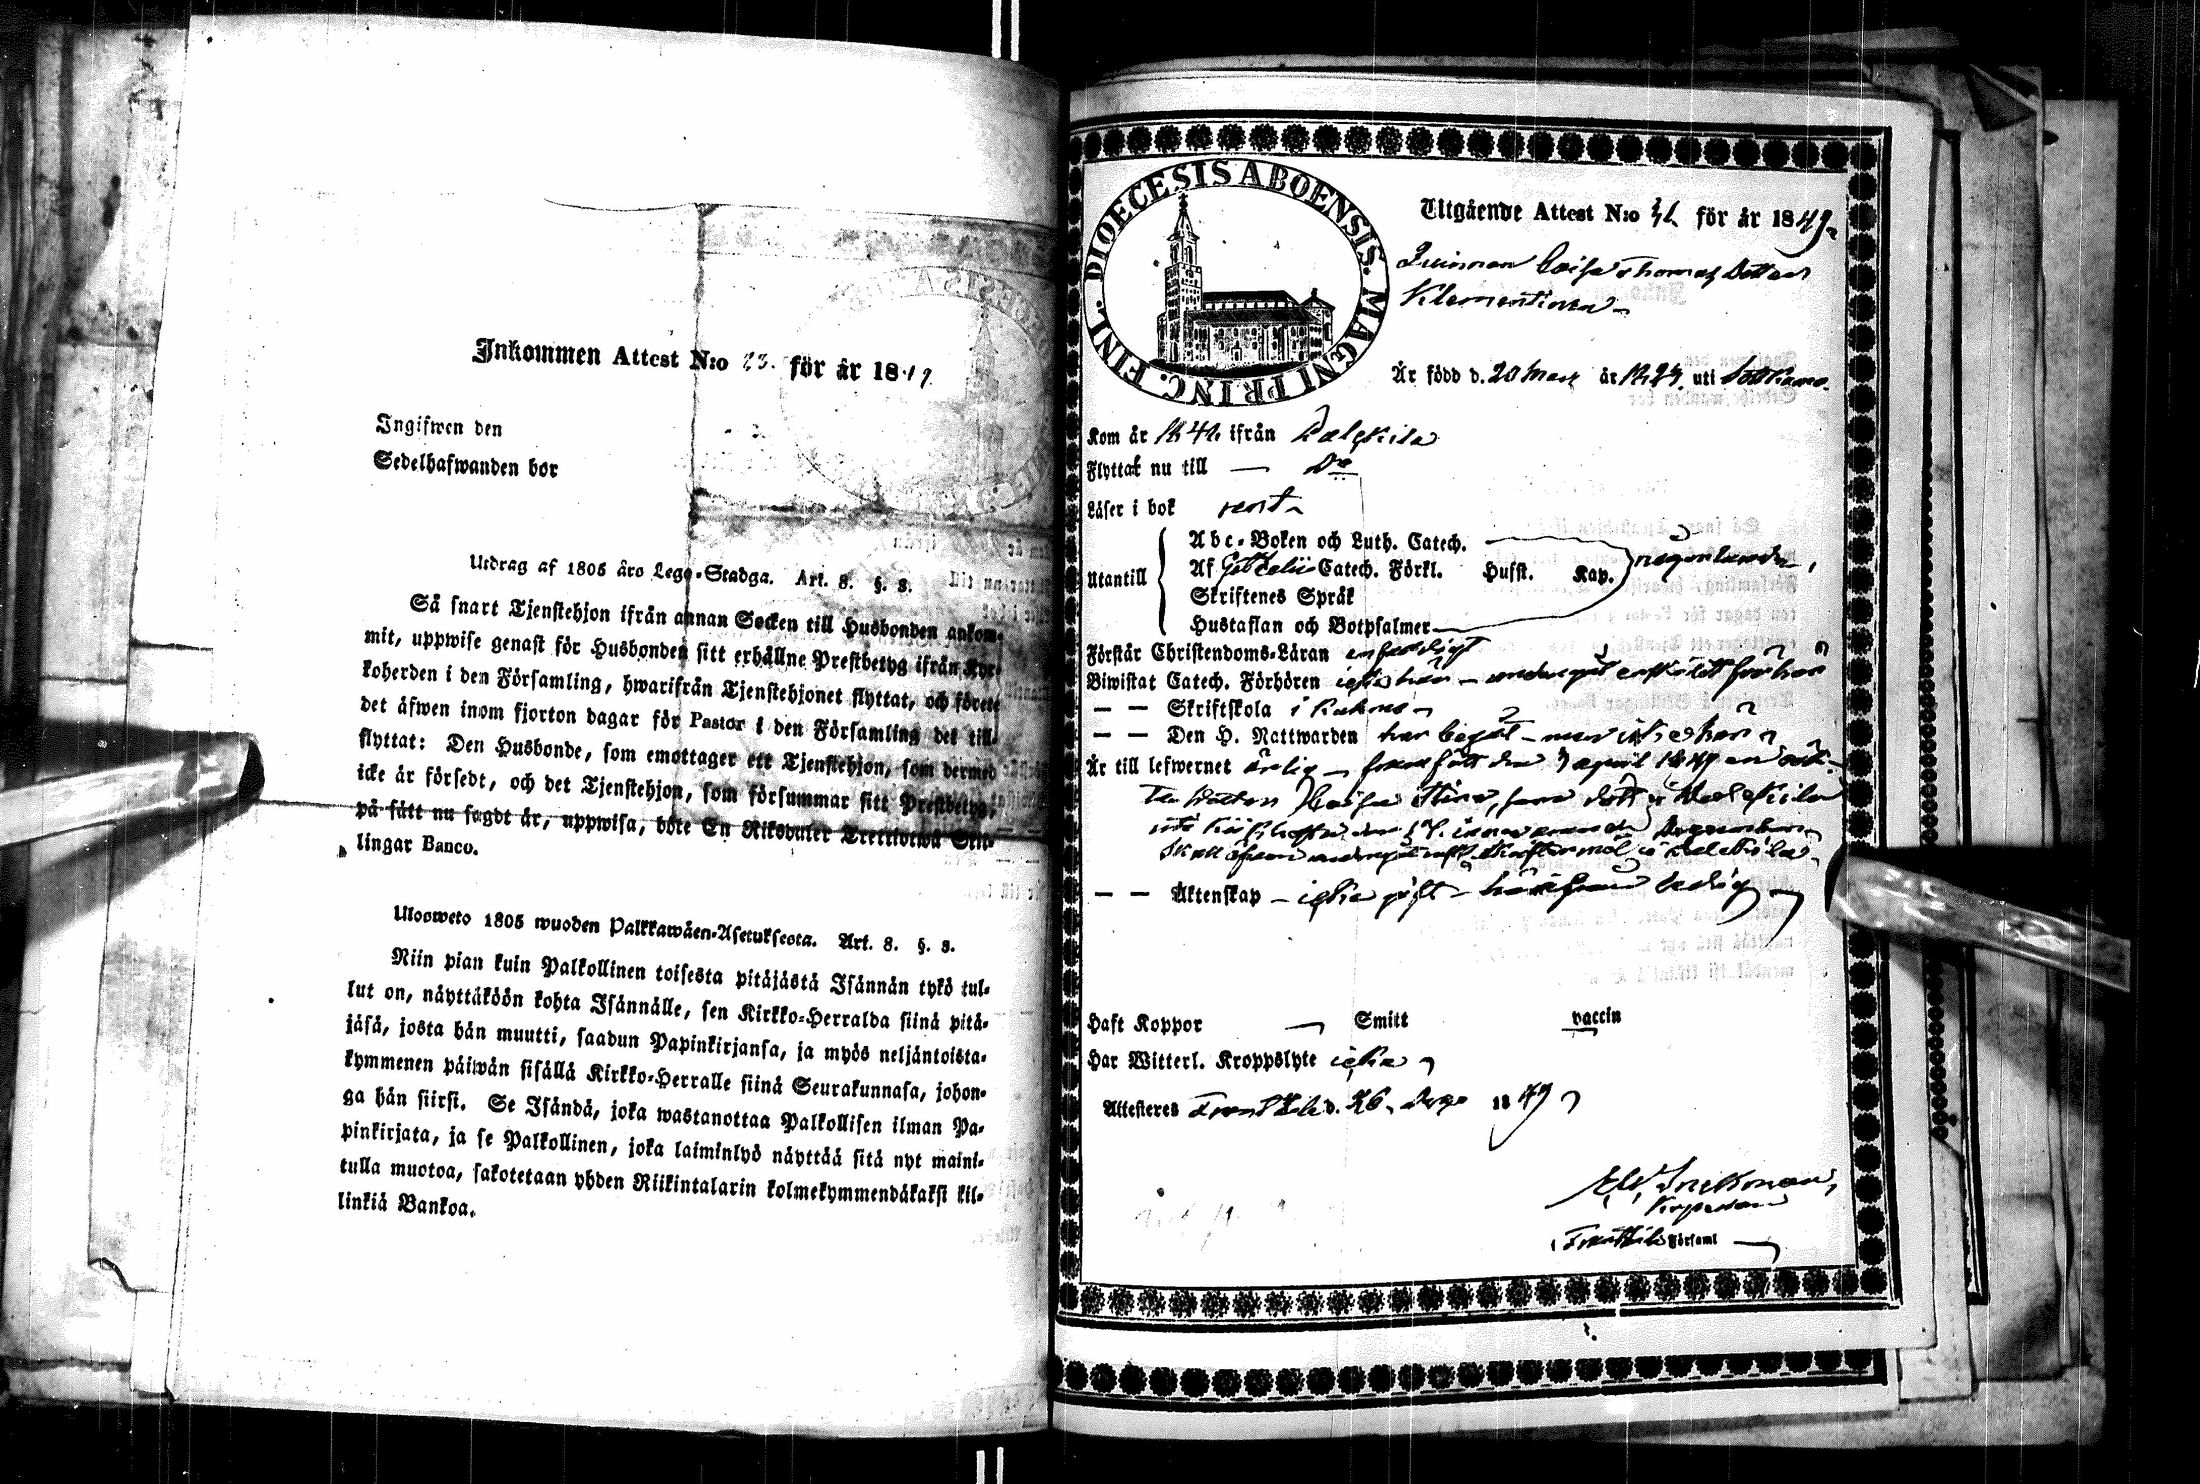 Inkommen Attest N:o 23. för år 1849
Ingifwen den
Sedelhafwanden bor
Utdrag af 1805 åro Lego-Stadga. Art. 8. §. 3.
Så snart Tjenstehjon ifrån annan Socken till Husbonden ankom-
mit, uppwise genast för Husbonden sitt erhållne Prestbetyg ifrån Kyr-
koherden i den Församling, hwarifrån Tjenstehjonet flyttat, och förete
det äfwen inom fjorton dagar för Pastor i den Församling det till-
flyttat: Den Husbonde, som emottager ett Tjenstehjon, som dermed
icke är försedt, och det Tjenstehjon, som försummar sitt Prestbetyg,
på sätt nu sagdt är, uppwisa, böte En Riksdaler Trettiotwå Skil-
lingar Banco.
Ulosweto 1805 wuoden Palkkawäen-Asetuksesta. Art. 8. §. 3.
Niin pian kuin Palkollinen toisesta pitäjästä Isännän tykö tul-
lut on, näyttäköön kohta Isännälle, sen Kirkko-Herralda siinä pitä-
jäsä, josta hän muutti, saadun Papinkirjansa, ja myös neljäntoista-
kymmenen päiwän sisällä Kirkko-Herralle siinä Seurakunnasa, johon-
ga hän siirsi. Se Isändä, joka wastanottaa Palkollisen ilman Pa-
pinkirjata, ja se Palkollinen, joka laiminlyö näyttää sitä nyt maini-
tulla muotoa, sakotetaan yhden Riikintalarin kolmekymmendäkaksi kil-
linkiä Bankoa.
DIOECESIS ABOENSIS. MAGNI PRINC. FINL.
Utgående Attest N:o för år 1849
Qvinnan Caisa Thomas Dotter
Klementinen
Är född d. 20 Mars år 1823. uti
Kom år 184 ifrån Walkiala
Flyttat nu till — Do
Läser i bok rent
Abc-Boken och Luth. Catech.
Utantill Af Gezelii Catech. Förkl. Husst. Kap. någorlunda
Skriftenes Språk
Hustaflan och Botpsalmer
Förstår Christendoms-Läran enfaldigt
Biwistat Catech. Förhören icke här
— — Skriftskola i
— — Den H. Nattwarden har begått – men icke här
Är till lefwernet ärlig – fött den april 1849 en oäk-
ta Dotter Caisa Stina, som
— — Äktenskap – icke gift – härifrån ledig
Haft Koppor — Smitt vaccin
Har Witterl. Kroppslyte icke
Attesteres d. 26. 1849
Församl